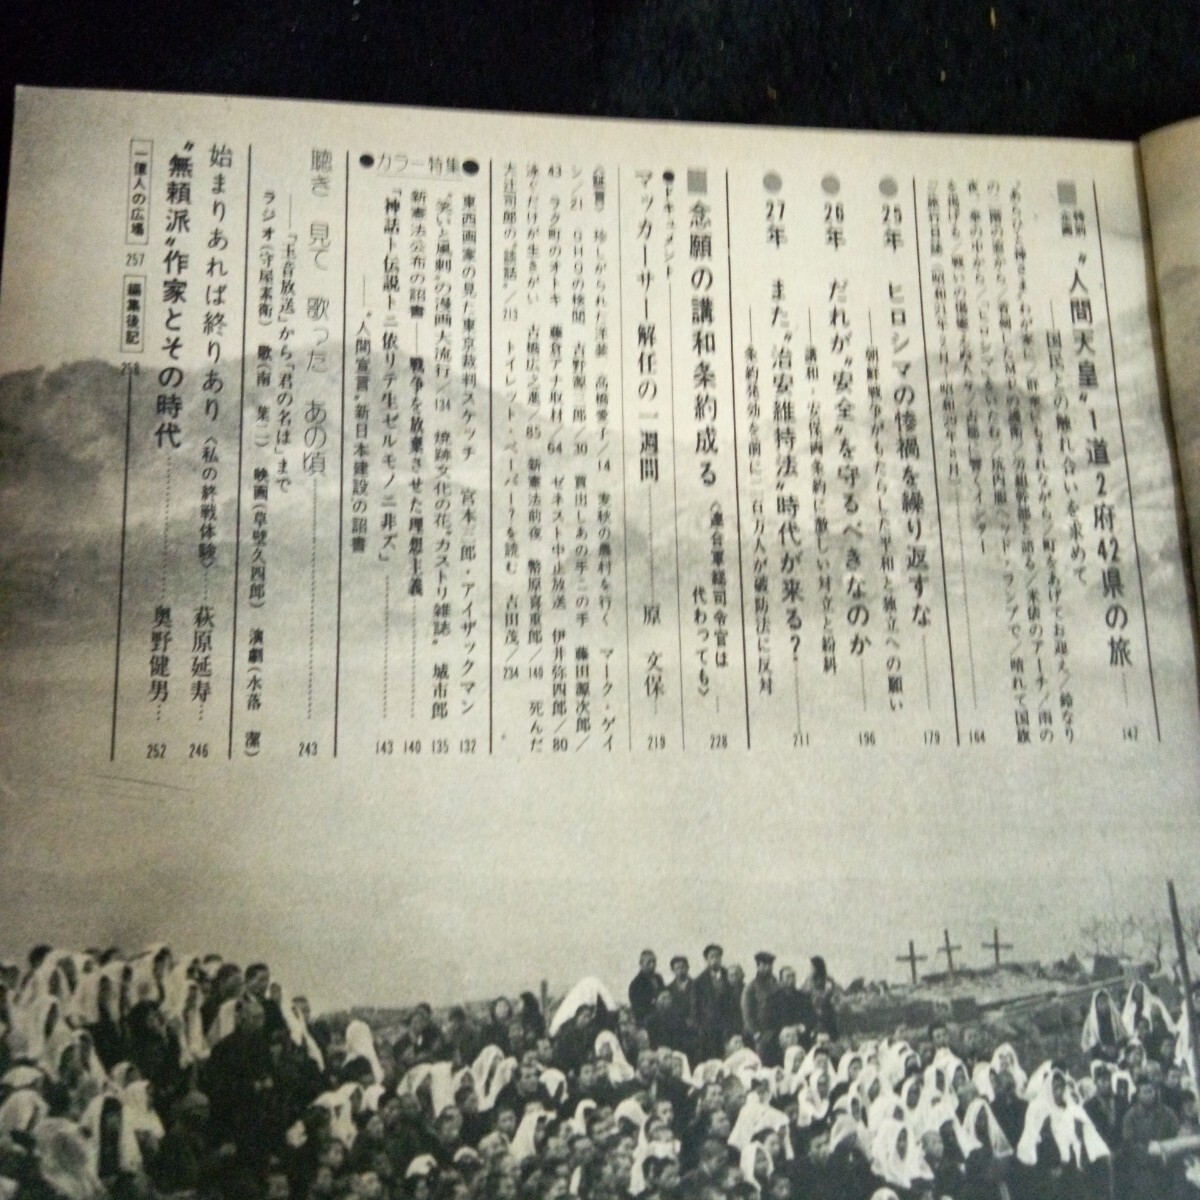 特別企画 “人間天皇” 1道2府42県の旅 147
――国民との触れ合いを求めて
“あらひと神さま”わが家に/群衆にもまれながら/町をあげてお迎え/鈴なり
の二階の窓から/着剣したMPの護衛/労組幹部と語る/米俵のアーチ/雨の
夜、傘の中から/“ヒロシマ”をいたむ/坑内服、ヘッド・ランプで/晴れて国旗
を掲げる/戦いの傷癒えぬ人々/古都に響く
“ご旅行日誌”(昭和21年2月―昭和29年8月) 164
25年 ヒロシマの惨禍を繰り返すな 179
朝鮮戦争がもたらした平和と独立への願い
26年 だれが“安全”を守るべきなのか 196
講和・安保両条約に激しい対立と紛糾
27年 また“治安維持法”時代が来る? 211
条約発効を前に二百万人が破防法に反対
念願の講和条約成る 〈連合軍総司令官は代わっても〉 228
●ドキュメント
マッカーサー解任の一週間 原 文保 219
〈証言〉 珍しがられた洋装 高橋愛子/14 麦秋の農村を行く マーク・ゲイ
ン/21 GHQの検閲 吉野源三郎/30 買出しあの手この手 藤田源次郎/
43 ラク町のオトキ 藤倉アナ取材/64 ゼネスト中止放送 伊井弥四郎/80
泳ぐだけが生きがい 古橋広之進/85 新憲法前夜 幣原喜重郎/140 死んだ
大辻司郎の“談話”/213 トイレット・ペーパー?を読む 吉田茂/234
●カラー特集●
東西画家の見た東京裁判スケッチ 宮本三郎・アイザックマン 132
“笑いと風刺”の漫画大流行/134 焼跡文化の花“カストリ雑誌” 城市郎 135
新憲法公布の詔書――戦争を放棄させた理想主義 140
「神話ト伝説トニ依リテ生ゼルモノニ非ズ」 143
――“人間宣言”新日本建設の詔書
聴き 見て 歌った あの頃 243
――「玉音放送」から「君の名は」まで
ラジオ(守屋素衛) 歌(南 葉二) 映画(草壁久四郎) 演劇(水落 潔)
始まりあれば終りあり 〈私の終戦体験〉 萩原延寿 246
“無頼派”作家とその時代 奥野健男 252
一億人の広場 257 編集後記 258